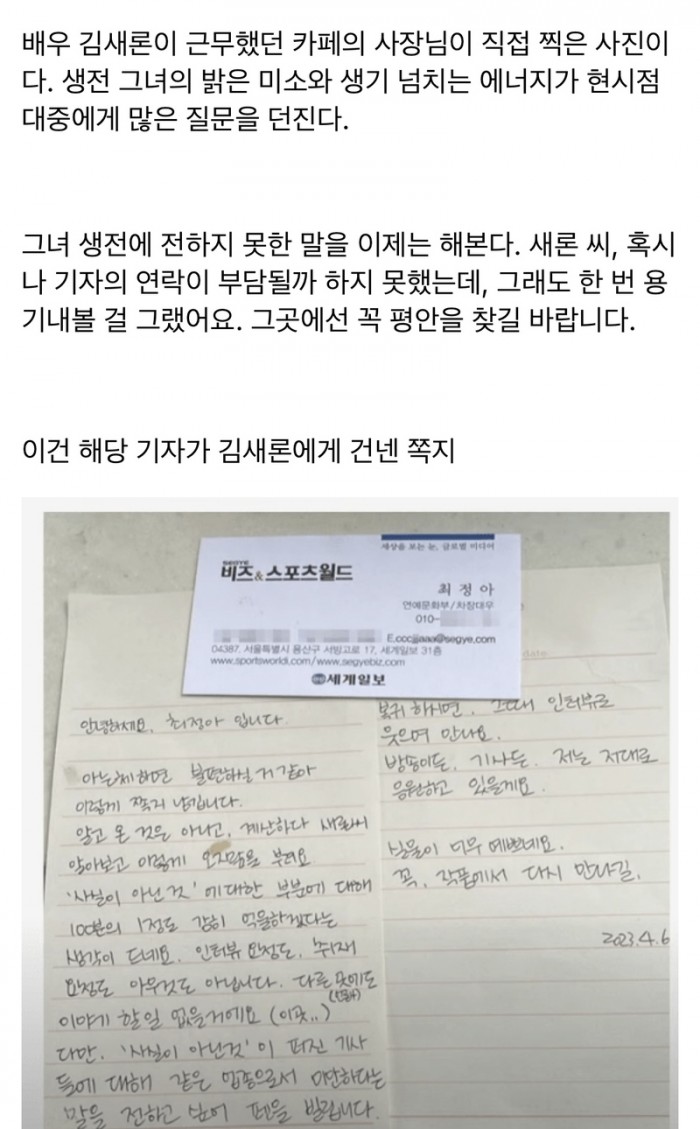 배우 김새론이 근무했던 카페의 사장님이 직접 찍은 사진이
다. 생전 그녀의 밝은 미소와 생기 넘치는 에너지가 현시점
대중에게 많은 질문을 던진다.
그녀 생전에 전하지 못한 말을 이제는 해본다. 새론 씨, 혹시
나 기자의 연락이 부담될까 하지 못했는데, 그래도 한 번 용
기내볼 걸 그랬어요. 그곳에선 꼭 평안을 찾길 바랍니다.
이건 해당 기자가 김새론에게 건넨 쪽지
세상을 보는 눈, 글로벌 미디어
SEGYE
비즈&스포츠월드
최 정 아
연예문화부/차장대우
010-
E.cccjjjaaa@segye.com
04387. 서울특별시 용산구 서빙고로 17, 세계일보 31층
www.sportsworldi.com/www.segyebiz.com
세계일보
date
안녕하세요. 최정아 입니다.
아는체하면 불편하실거 같아
이렇게 쪽지 남깁니다.
알고 온 것은 아니고, 계산하다 새론씨
알아보고 이렇게 오지랖을 부려요
'사실이 아닌 것' 에 대한 부분에 대해
100분의 1정도 감히 억울하겠다는
생각이 드네요. 인터뷰 요청도, 취재
요청도 아무것도 아닙니다. 다른 곳에도
이야기 할 일 없을거에요 (이곳..)
다만. '사실이 아닌것' 이 퍼진 기사
들에 대해 같은 업종으로서 미안하다는
말을 전하고 싶어 펜을 빌립니다.
복귀 하시면, 그때 인터뷰로
웃으며 만나요.
방송이든, 기사든. 저는 저대로
응원하고 있을게요.
실물이 너무 예쁘네요.
꼭, 작품에서 다시 만나길.
2023.4.6